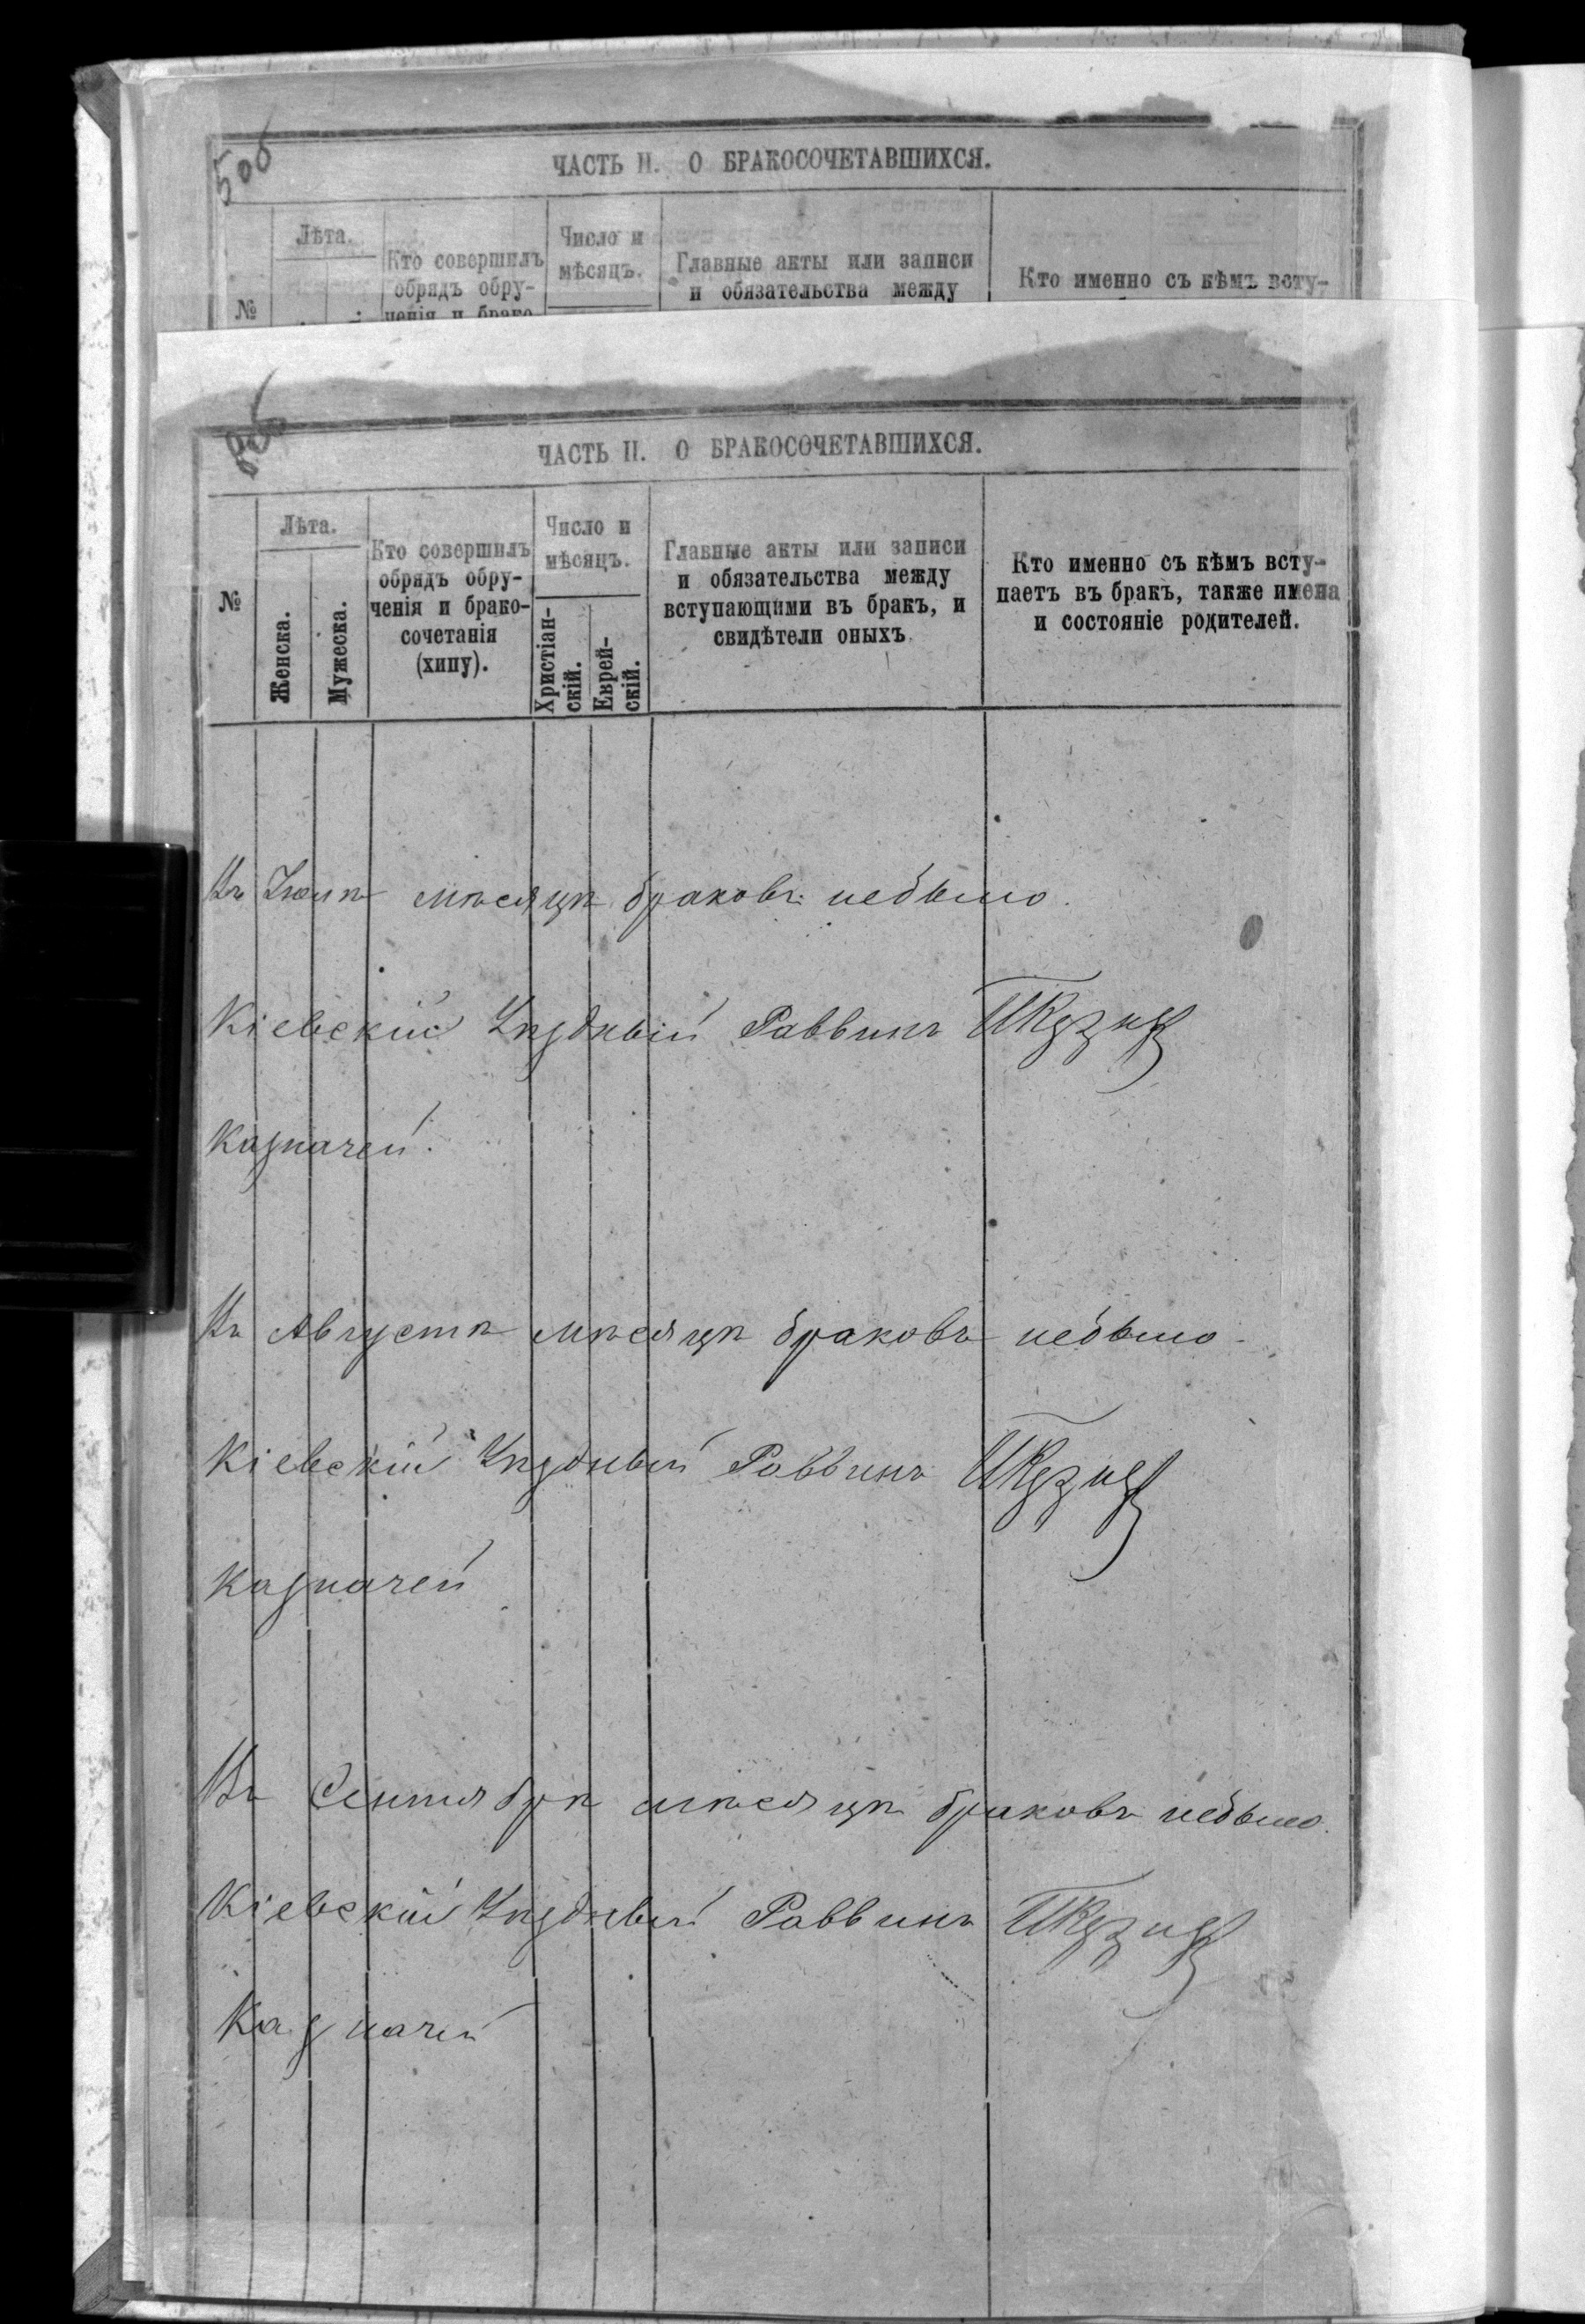 506
ЧАСТЬ II. О БРАКОСОЧЕТАВШИХСЯ.
№
Лѣта.
Кто совершилъ
обрядъ обру-
ченія и брако-
Число и
мѣсяцъ.
Главные акты или записи
и обязательства между
Кто именно съ кѣмъ всту-
ЧАСТЬ II. О БРАКОСОЧЕТАВШИХСЯ.
№
Лѣта.
Женска.
Мужеска.
Кто совершилъ
обрядъ обру-
ченія и брако-
сочетанія
(хипу).
Число и
мѣсяцъ.
Христіан-
скій.
Еврей-
скій.
Главные акты или записи
и обязательства между
вступающими въ бракъ, и
свидѣтели оныхъ.
Кто именно съ кѣмъ всту-
паетъ въ бракъ, также имена
и состояніе родителей.
Въ мѣсяцѣ браковъ небыло.
Кіевскій Уѣздный Раввинъ
Казначей.
Въ Августѣ мѣсяцѣ браковъ небыло.
Кіевскій Уѣздный Раввинъ
Казначей
Въ Сентябрѣ мѣсяцѣ браковъ небыло.
Кіевскій Уѣздный Раввинъ
Казначей